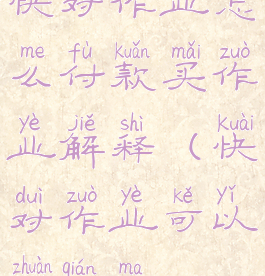 快对作业怎
me fù kuǎn mǎi zuò
么付款买作
yè jiě shì kuài
业解释（快
duì zuò yè kě yǐ
对作业可以
zhuàn qián ma